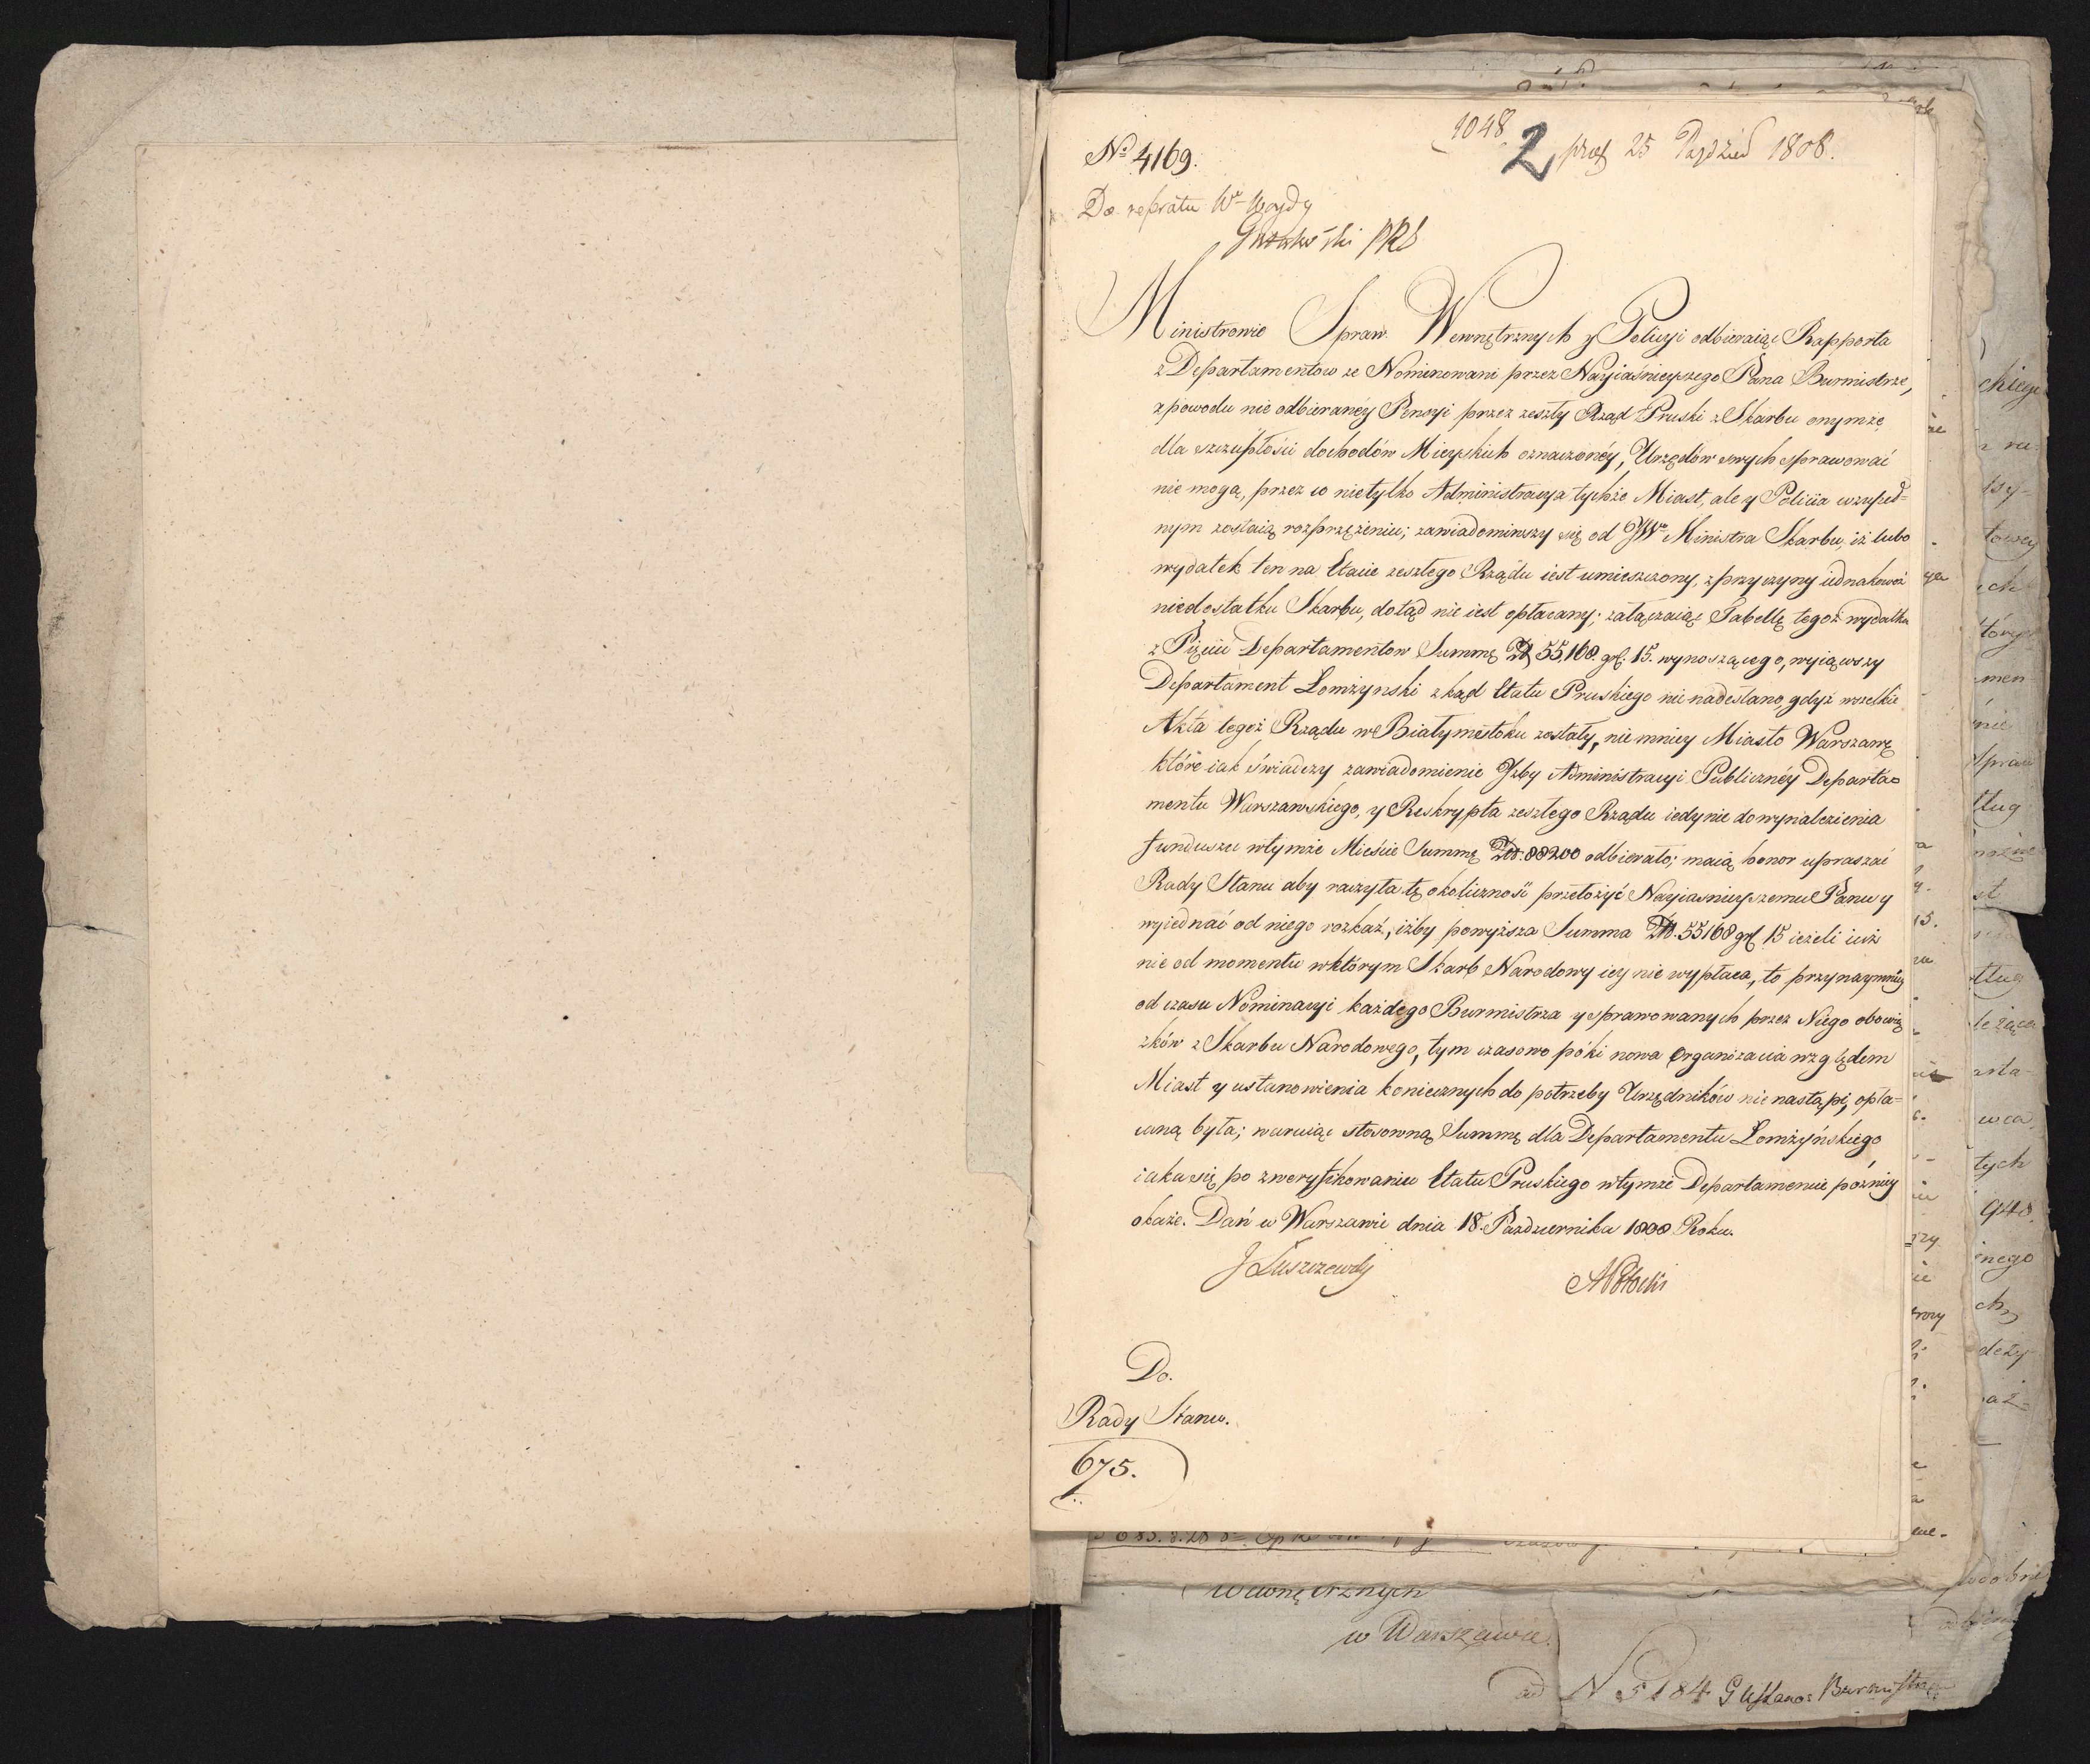 1048
2 pręs 25 Paździer 1808.
No 4169.
Do refratu Wo Woydy
Gutakowski PRS
Ministrowie Spraw Wewnętrznych y Policyi odbieraiąc Rapporta
z Departamentow ze Nominowani przez Nayiaśnieyszego Pana Burmistrze,
z powodu nie odbieranéy Pensyi przez zeszły Rząd Pruski z Skarbu onymże
dla szczupłości dochodów Mieyskich oznaczonéy, Urzędów swych sprawować
nie mogą, przez co nietylko Administracya tychże Miast, ale y Policiia wzupeł=
nym zostaią rozprzężeniu; zawiadomiwszy się od JWo Ministra Skarbu, iż lubo
wydatek ten na Etacie zeszłego Rządu iest umieszczony, z przyczyny iednakowoż
niedostatku Skarbu, dotąd nie iest opłacany; załączaiąc Tabellę tegoż wydatku
z Pięciu Departamentow Summę Zł 55,168. gr: 15. wynoszącego, wyiąwszy
Departament Łomżynski zkąd Etatu Pruskiego nie nadesłano, gdyż wszelkie
Akta tegoż Rządu w Białymstoku zostały, nie mniey Miasto Warszawę
które iak świadczy zawiadomienie Jzby Administracyi Publicznéy Departa=
mentu Warszawskiego, y Reskrypta zeszłego Rządu iedynie do wynalezienia
Funduszu wtymże Mieście Summę Zł. 88200 odbierało; maią honor upraszać
Rady Stanu aby raczyła tę okoliczność przełożyć Nayiasnieyszemu Panu y
wyiednać od niego rozkaz, iżby powyższa Summa Zł. 55168 gr 15 ieżeli iuż
nie od momentu wktórym Skarb Narodowy iey nie wypłaca, to przynaymniey
od czasu Nominacyi każdego Burmistrza y sprawowanych przez Niego obowią
zków z Skarbu Narodowego, tym czasowo póki nowa Organizacia względem
Miast y ustanowienia koniecznych do potrzeby Urzędników nie nastąpi, opła=
caną była; waruiąc stosowną Summę dla Departamentu Łomżyńskiego
iaka się po zweryfikowaniu Etatu Pruskiego wtymże Departamencie pózniey
okaże. Dań w Warszawie dnia 18. Pazdziernika 1808 Roku.
J Łuszczewski
A Potocki
Do.
Rady Stanu.
675.
Wewnętrznych
w Warszawie.
ad N 5184 G